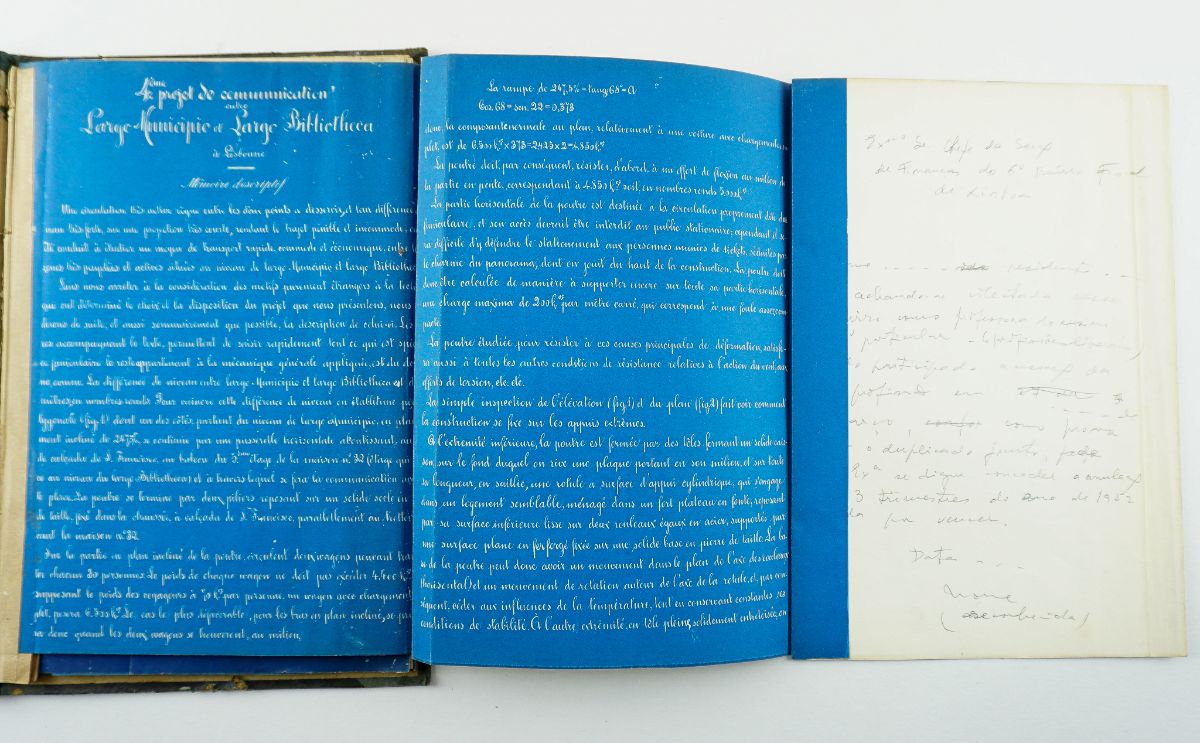 4ème projet de communication
entre
Largo Municipio et Largo Bibliotheca
à Lisbonne
Mémoire descriptif
Une circulation très active règne entre les deux points a desservir, et leur différence
très forte, sur une projection très courte, rendent le trajet pénible et incommode.
conduit à étudier un moyen de transport rapide, commode et économique, entre
zones très peuplées et actives situées au niveau de largo Municipio et largo Bibliotheca
Sans nous arrêter à la considération des motifs purement étrangers à la
qui ont déterminé le choix et la disposition du projet que nous présentons, nous
ferons de suite, et aussi sommairement que possible, la description de celui-ci. Les
accompagnent le texte, permettent de saisir rapidement tout ce qui est
ce funiculaire le reste appartenant à la mécanique générale appliquée, est du
comme. La différence de niveau entre largo Municipio et largo Bibliotheca est
mètres, en nombres ronds. Pour vaincre cette différence de niveau on établit une
lygonale (fig. 1) dont un des côtés, partant du niveau de largo Municipio, en plan
incliné de 247,5%, se continue par une passerelle horizontale aboutissant, au
de calçada de S. Francisco, au balcon du 3ème étage de la maison nº 32 (étage qui
ce au niveau du largo Bibliotheca) et à travers lequel se fera la communication
la place. La poutre se termine par deux piliers reposant sur un solide socle en
de taille, fixé dans la chaussée, à calçada de S. Francisco, parallèlement au
avant la maison nº 32
Sur la partie en plan incliné de la poutre, circulent deux wagons pouvant
ter chacun 30 personnes. Le poids de chaque wagon ne doit pas excéder 4.400 kos
supposant le poids des voyageurs à 70 kos par personne, un wagon avec chargement
plet, pesera 6.500 kos. Le cas le plus défavorable, pour les bras en plan incliné, se
ra donc quand les deux wagons se trouveront, au milieu.
La rampe de 247,5% = tang 68° = a
Cos. 68 = sen. 22 = 0,373
donc, la composante normale au plan, relativement à une voiture avec chargement
plet, est de 6.500 kos × 373 = 2425 × 2 = 4.850 kos
La poutre doit, par conséquent, résister, d'abord, à un effort de flexion au milieu de
la partie en pente, correspondant à 4.850 kos soit, en nombres ronds 5.000 kos
La partie horizontale de la poutre est destinée a la circulation proprement dite du
funiculaire, et son accès devrait être interdit au public stationaire; cependant il se
ra difficile d'y défendre le stationnement aux personnes munies de tickets, séduites par
le charme du panorama, dont on jouit du haut de la construction. La poutre doit
donc être calculée de manière à supporter encore sur toute sa partie horizontale,
une charge maxima de 200 kos par mètre carré, qui correspond à une foule assez com
pacte.
La poutre étudiée pour résister à ces causes principales de déformation, satisfe
ra aussi à toutes les autres conditions de résistance relatives à l'action du vent, aux
efforts de torsion, etc. etc.
La simple inspection de l'élévation (fig. 1) et du plan (fig. 2) fait voir comment
la construction se fixe sur les appuis extrêmes.
A l'extrémité inférieure, la poutre est formée par des tôles formant un solide cais
son, sur le fond duquel on rive une plaque portant en son milieu, et sur toute
sa longueur, en saillie, une rotule a surface d'appui cylindrique, qui s'engage
dans un logement semblable, ménagé dans un fort plateau en fonte, reposant
par sa surface inférieure lisse sur deux rouleaux égaux en acier, supportés par
une surface plane en fer forgé fixée sur une solide base en pierre de taille. La ba
se de la poutre peut donc avoir un mouvement dans le plan de l'axe des rouleaux
(horizontal) et un mouvement de rotation autour de l'axe de la rotule, et, par con
séquent, céder aux influences de la température, tout en conservant constantes ses
conditions de stabilité. A l'autre extrémité, en tôle pleine, solidement entretoisée, on
Exmo Sr. Chefe da Secç
de Finanças do 6º Bairro Fiscal
de Lisboa
residente
achando-se
como professor
particular
participado
profissão em
como prova
o duplicado junto,
se digne conceder
3 trimestres do ano de 1952
por vencer.
Data
Nome